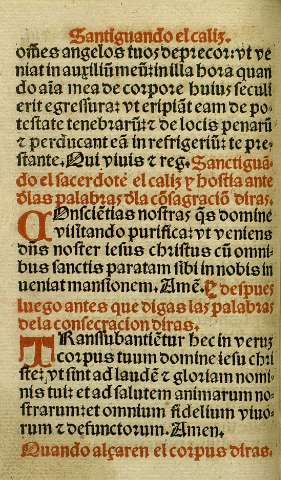 Santiguando el caliz.
om̃es angelos tuos deprecor: vt ve
niat in auxiliũ meũ: in illa hora quan
do aĩa mea de corpore huius seculi
erit egressura: vt eripiãt eam de po-
testate tenebrarũ: ⁊ de locis penarũ
⁊ perducant eã in refrigeriũ: te pre-
stante. Qui viuis ⁊ reg. Sanctigua
do el sacerdote el caliz y hostia ante
d̃las palabras d̃la cõsagraciõ diras.
COnsciẽtias nostras q̃s domine
visitando purifica: vt veniens
dñs noster iesus christus cũ omni
bus sanctis paratam sibi in nobis in
ueniat mansionem. Amẽ. Y despues
luego antes que digas las palabras
dela consecracion diras.
TRanssubantiẽtur hec in veruz
corpus tuum domine iesu chri
ste: vt sint ad laudẽ ⁊ gloriam nomi
nis tui: et ad salutem animarum no
strarum: et omnium fidelium viuo
rum ⁊ defunctorum. Amen.
Quando alçaren el corpus diras.